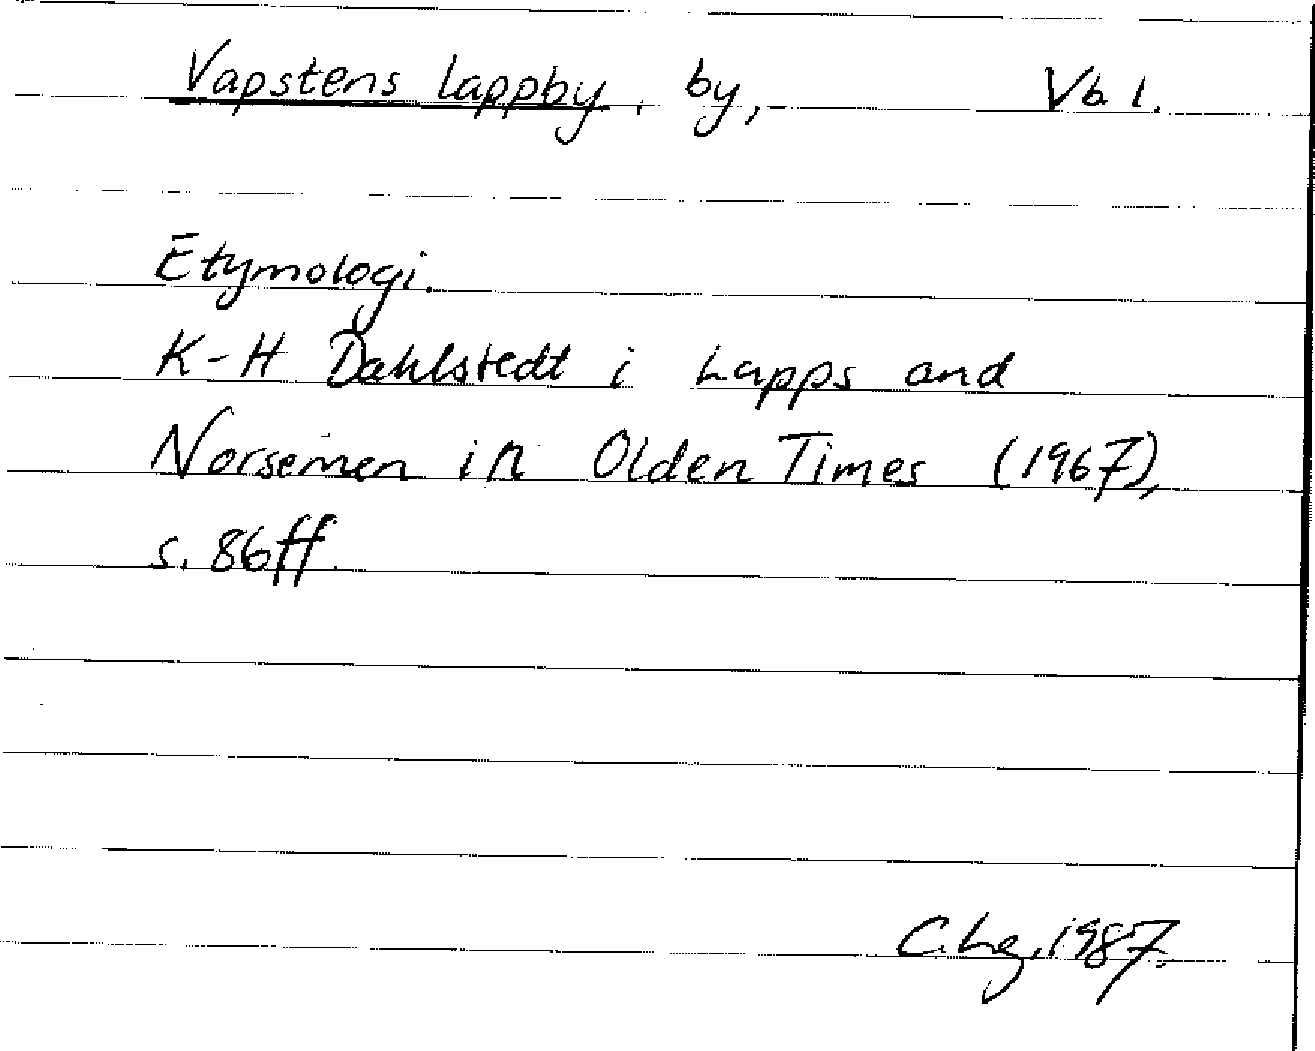 Vapstens lappby, by, Vb. l.
Etymologi.
K-H Dahlstedt i Lapps and
Norsemen in Olden Times (1967),
s. 86ff.
C. Lg. 1987.